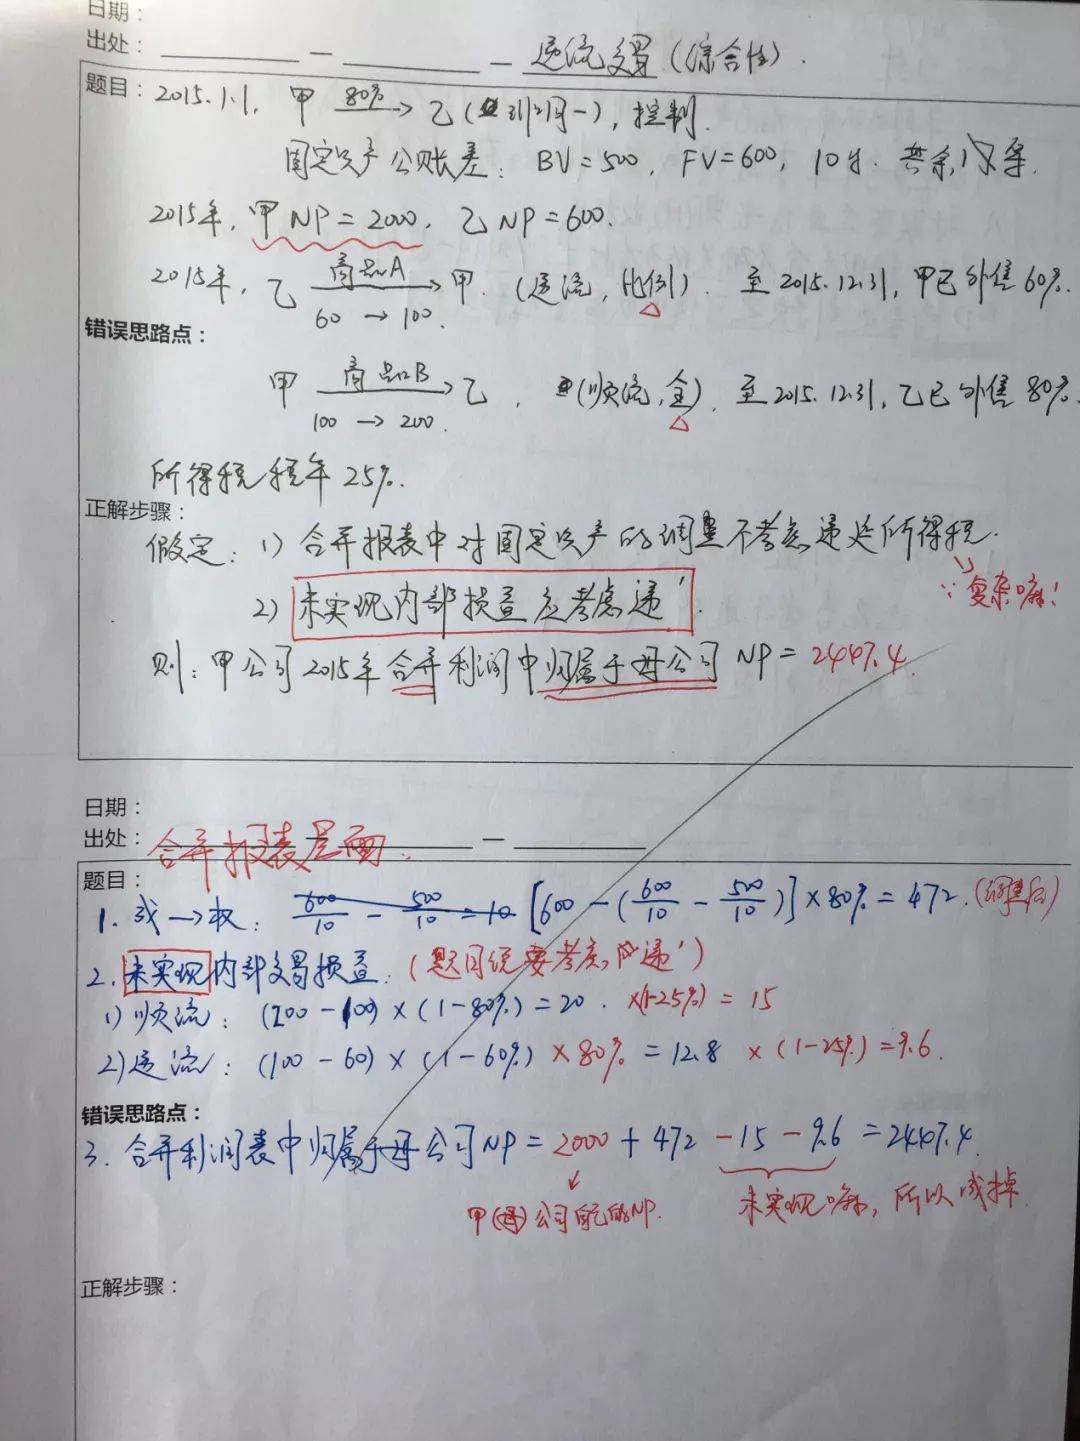 日期：
出处： — — 逆流交易（综合性）.
题目：2015.1.1, 甲 80%→ 乙（非同一）, 控制.
固定资产公账差：BV=500, FV=600, 10年.
2015年, 甲NP=2000, 乙NP=600.
2015年, 乙 商品A 60→100. → 甲.（逆流, 比例）. 至2015.12.31, 甲已外售60%.
错误思路点：
甲 商品B 100→200. → 乙,（顺流, 全）. 至2015.12.31, 乙已外售80%.
所得税税率25%.
正解步骤：
假定：1）合并报表中对固定资产的调整不考虑递延所得税.
∵复杂嘛！
2）未实现内部损益应考虑递'.
则：甲公司2015年合并利润中归属于母公司NP=2447.4.
日期：
出处：合并报表层面： —
题目：
1. 成→权： 600/10 - 500/10 = 10 [600-(600/10 - 500/10)]×80%=472.（调整后）
2. 未实现内部交易损益.（题目说要考虑所递'）
1）顺流：(200-100)×(1-80%)=20. ×(1-25%)=15
2）逆流：(100-60)×(1-60%)×80%=12.8 ×(1-25%)=9.6.
错误思路点：
3. 合并利润表中归属于母公司NP=2000+472-15-9.6=2447.4.
甲(母)公司自己的NP. 未实现嘛, 所以减掉.
正解步骤：